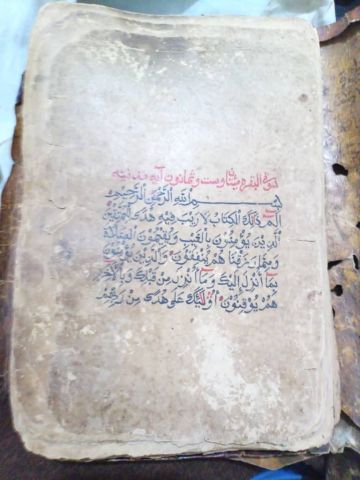 سورة البقرة مئتان وست وثمانون آية مدنية
بسم الله الرحمن الرحيم
الم ذَلِكَ الْكِتَابُ لَا رَيْبَ فِيهِ هُدًى لِلْمُتَّقِينَ
الَّذِينَ يُؤْمِنُونَ بِالْغَيْبِ وَيُقِيمُونَ الصَّلَاةَ
وَمِمَّا رَزَقْنَاهُمْ يُنْفِقُونَ وَالَّذِينَ يُؤْمِنُونَ
بِمَا أُنْزِلَ إِلَيْكَ وَمَا أُنْزِلَ مِنْ قَبْلِكَ وَبِالْآخِرَةِ
هُمْ يُوقِنُونَ أُولَئِكَ عَلَى هُدًى مِنْ رَبِّهِمْ